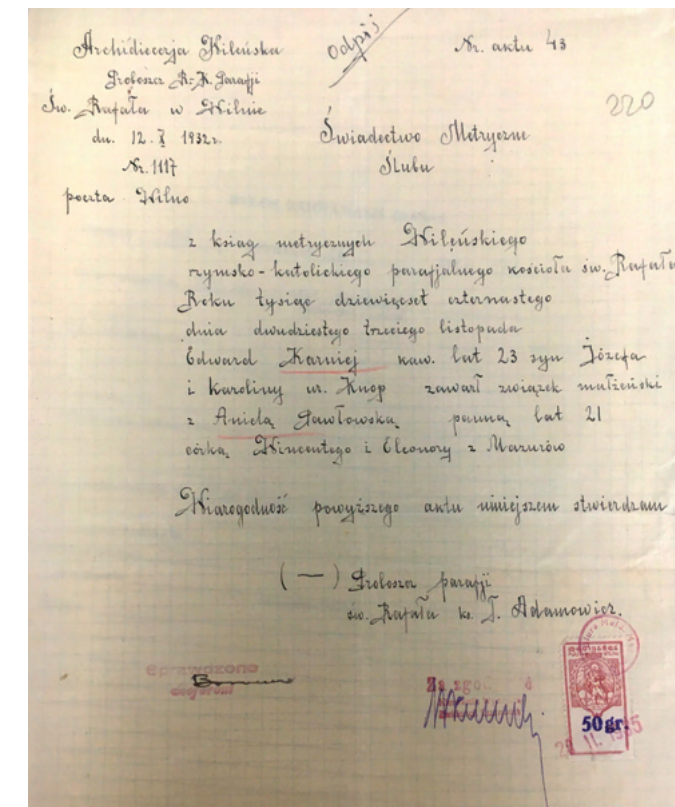 Archidiecezja Wileńska
Odpis
Nr. aktu 43
Proboszcz R.-K. Parafji
Św. Rafała w Wilnie
220
dn. 12. X 1932r.
Świadectwo Metryczne
Nr. 1117
Ślubu
poczta Wilno
z ksiąg metrycznych Wileńskiego
rzymsko-katolickiego parafjalnego kościoła św. Rafała
Roku tysiąc dziewięćset czternastego
dnia dwudziestego trzeciego listopada
Edward Karniej kaw. lat 23 syn Józefa
i Karoliny ur. Knop zawarł związek małżeński
z Anielą Pawłowską panną lat 21
córką Wincentego i Eleonory z Mazurów
Wiarogodność powyższego aktu niniejszem stwierdzam
(—) Proboszcz parafji
św. Rafała ks. J. Adamowicz.
Sprawdzono
Za zgodność
50 gr.